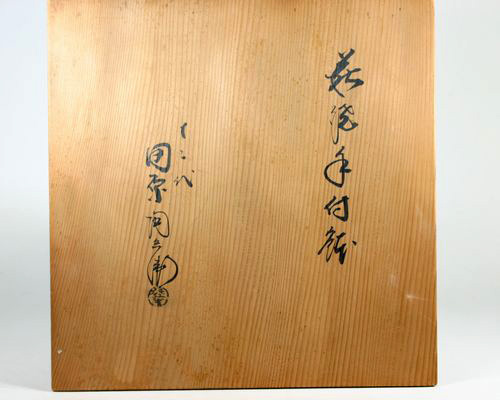 萩焼手付鉢
十二代
田原陶兵衛